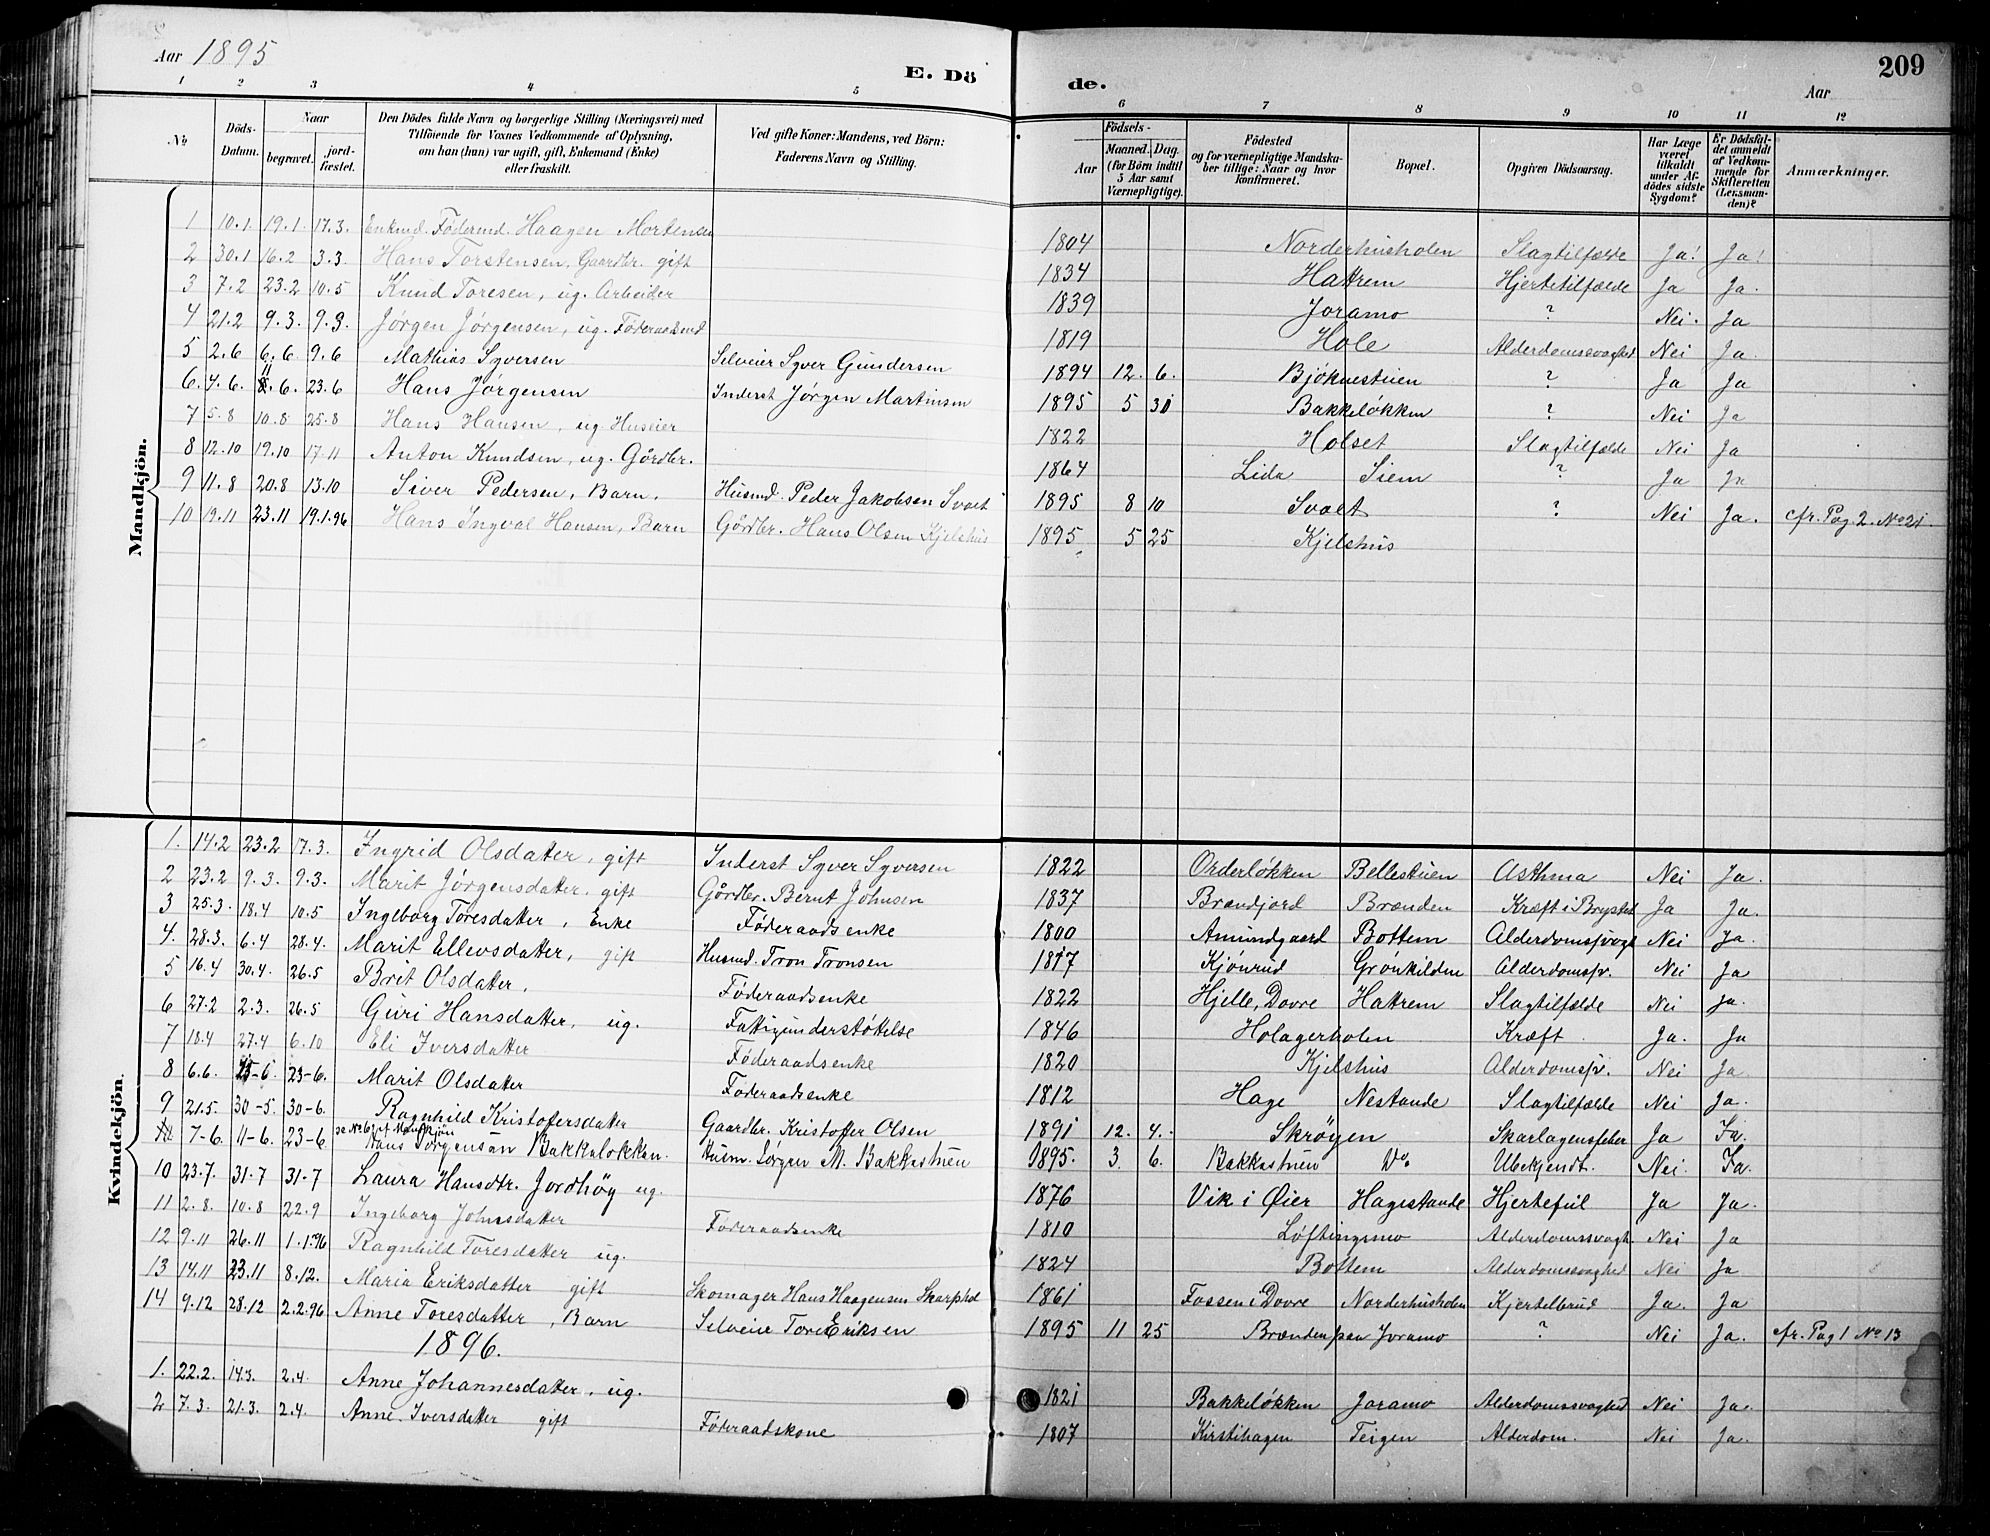 Aar 1895
E. Dö
de.
209
Aar
1 2 3 4 5 6 7 8 9 10 11 12
No
Döds-Datum.
Naar
begravet.
jord-fæstet.
Den Dödes fulde Navn og borgerlige Stilling (Næringsvei) med
Tilföiende for Voxnes Vedkommende af Oplysning,
om han (hun) var ugift, gift, Enkemand (Enke)
eller fraskilt.
Ved gifte Koner: Mandens, ved Börn:
Faderens Navn og Stilling.
Födsels-
Aar
Maaned. Dag.
(for Börn indtil
5 Aar samt
Værnepligtige).
Födested
og for værnepligtige Mandska-
ber tillige: Naar og hvor
konfirmeret.
Bopæl.
Opgiven Dödsaarsag.
Har Læge
været
tilkaldt
under Af-
dödes sidste
Sygdom?
Er Dödsfal-
det anmeldt
af Vedkom-
mende for
Skifteretten
(Lensman-
den)?
Anmærkninger.
Mandkjön.
1 10.1 19.1 17.3. Enkmd. Födermd. Haagen Mortensen 1804 Norderhusholen Slagtilfælde Ja! Ja!
2 30.1 16.2 3.3. Hans Torstensen, Gaardbr. gift 1834 Hattrem Hjertetilfælde Ja Ja.
3 7.2 23.2 10.5 Knud Toresen, ug. Arbeider 1839 Joramo ? Nei. Ja
4 21.2 9.3. 9.3. Jørgen Jørgensen, ug. Föderaadsmd 1819 Hole Alderdomssvaghed Nei Ja.
5 2.6 6.6. 9.6 Mathias Syversen Selveier Syver Gundersen 1894 12. 6. Bjøknestuen ? Ja Ja
6. 4.6. 11.6. 23.6 Hans Jørgensen Inderst Jørgen Martinsen 1895 5 30 Bakkeløkken ? Nei Ja
7 5.8 10.8 25.8 Hans Hansen, ug. Huseier 1822 Holset Slagtilfælde Nei Ja
8 12.10 19.10 17.11 Anton Knudsen, ug. Gårdbr. 1864 Lida Siem ? Ja Ja
9 11.8 20.8 13.10 Siver Pedersen, Barn. Husmd. Peder Jakobsen Svaet 1895 8 10 Svaet ? Nei Ja. cfr. Pag 2. No 21.
10 19.11 23.11 19.1.96 Hans Ingval Hansen, Barn Gårdbr. Hans Olsen Kjelshus 1895 5 25 Kjelshus
Kvindekjön.
1. 14.2 23.2 17.3. Ingrid Olsdatter, gift Inderst Syver Syversen 1822 Orderløkken Bellestuen Asthma Nei Ja.
2 23.2 9.3. 9.3. Marit Jørgensdatter, gift Gårdbr. Bernt Johnsen 1837 Brændjord Brænden Kræft i Brystet Ja Ja.
3 25.3. 18.4 10.5 Ingeborg Toresdatter, Enke Föderaadsenke 1800 Amundgaard Bottem Alderdomssvagh Nei Ja.
4. 28.3. 6.4 28.4. Marit Ellevsdatter, gift Husmd. Tron Tronsen 1817 Kjønrud Grønkilden Alderdomssv. Nei Ja
5 16.4 30.4. 26.5 Brit Olsdatter, Föderaadsenke 1822 Hjelle, Dovre Hattrem Slagtilfælde Nei Ja.
6 27.2 2.3. 26.5 Guri Hansdatter, ug. Fattigunderstøttelse 1846 Holagerholen Kræft Ja. Ja
7 18.4 27.4 6.10 Eli Iversdatter Föderaadsenke 1820 Kjelshus Alderdomssv. Nei Ja.
8 6.6. 23-6. Marit Olsdatter Föderaadsenke 1812 Hage Nestande Slagtilfælde Nei Ja.
9 21.5. 30-5. 30-6. Ragnhild Kristofersdatter Gaardbr. Kristoffer Olsen 1891 12. 4. Skrøyen Skarlagensfeber Ja Ja.
7-6. 11-6. 23-6 se No 6 af Mandkjön Hans Jørgensøn Bakkeløkken. Husm. Jørgen M. Bakkestuen 1895. 3 6. Bakkestuen Do. Ubekjendt. Nei. Ja.
10 23.7. 31.7 31.7 Laura Hansdtr. Jordhøy ug. 1876 Vik i Øier Hagestande Hjertefeil Ja Ja.
11 2.8. 10.8 22.9 Ingeborg Johnsdatter Föderaadsenke 1810 Løftingsmo Alderdomssvagh. Nei Ja
12 9.11 26.11 1.1.96 Ragnhild Toresdatter ug. 1824 Bottem Alderdomssvaghed Nei Ja
13 14.11 23.11 8.12. Maria Eriksdatter gift Skomager Hans Haagensen Skarphol 1861 Fossen i Dovre Norderhusholen Kjertelbrud Ja. Ja
14 9.12 28.12 2.2.96 Anne Toresdatter, Barn Selveier Tore Eriksen 1895 11 25 Brændenpaa Joramo ? Nei Ja. cfr. Pag 1 No 13
1896.
1. 22.2. 14.3. 2.4. Anne Johannesdatter, ug. 1821 Bakkeløkken Joramo Alderdomssvaghed Nei Ja.
2 7.3. 21.3. 2.4. Anne Iversdatter gift Föderaadskone 1807 Kirstihagen Teigen Alderdom. Nei Ja.